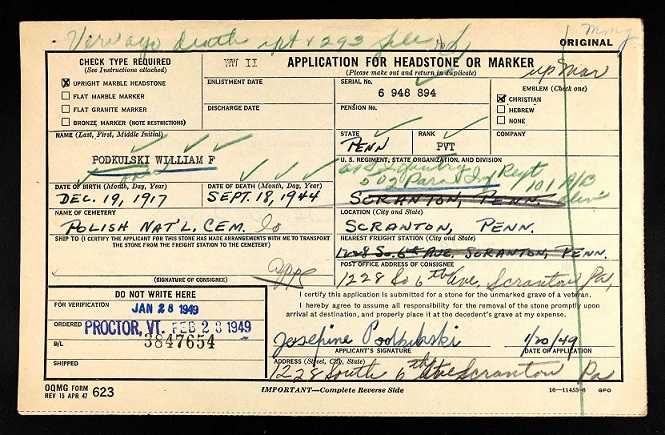 death rpt & 293
ORIGINAL
CHECK TYPE REQUIRED
(See Instructions attached)
W II
APPLICATION FOR HEADSTONE OR MARKER
(Please make out and return in duplicate)
UPRIGHT MARBLE HEADSTONE
FLAT MARBLE MARKER
FLAT GRANITE MARKER
BRONZE MARKER (NOTE RESTRICTIONS)
ENLISTMENT DATE
DISCHARGE DATE
SERIAL No.
6 948 894
PENSION No.
EMBLEM (Check one)
CHRISTIAN
HEBREW
NONE
NAME (Last, First, Middle Initial)
PODKULSKI WILLIAM F
STATE
PENN
RANK
PVT
COMPANY
DATE OF BIRTH (Month, Day, Year)
DEC. 19, 1917
DATE OF DEATH (Month, Day, Year)
SEPT. 18, 1944
U. S. REGIMENT, STATE ORGANIZATION, AND DIVISION
502 Para Inf Regt
101 A/B
SCRANTON, PENN.
NAME OF CEMETERY
POLISH NAT'L. CEM.
LOCATION (City and State)
SCRANTON, PENN.
SHIP TO (I CERTIFY THE APPLICANT FOR THIS STONE HAS MADE ARRANGEMENTS WITH ME TO TRANSPORT
THE STONE FROM THE FREIGHT STATION TO THE CEMETERY)
NEAREST FREIGHT STATION (City and State)
1228 So. 6th AVE. SCRANTON, PENN.
(SIGNATURE OF CONSIGNEE)
POST OFFICE ADDRESS OF CONSIGNEE
1228 So 6th Ave. Scranton Pa,
DO NOT WRITE HERE
FOR VERIFICATION
JAN 28 1949
ORDERED
PROCTOR, VT. FEB 28 1949
B/L
3847654
SHIPPED
I certify this application is submitted for a stone for the unmarked grave of a veteran.
I hereby agree to assume all responsibility for the removal of the stone promptly upon
arrival at destination, and properly place it at the decedent's grave at my expense.
Josephine Podkulski
1/20/49
APPLICANT'S SIGNATURE
DATE OF APPLICATION
ADDRESS (Street, City, State)
1228 South 6th Ave Scranton Pa
OQMG FORM
REV 15 APR 47
623
IMPORTANT—Complete Reverse Side
16—11453-6
GPO